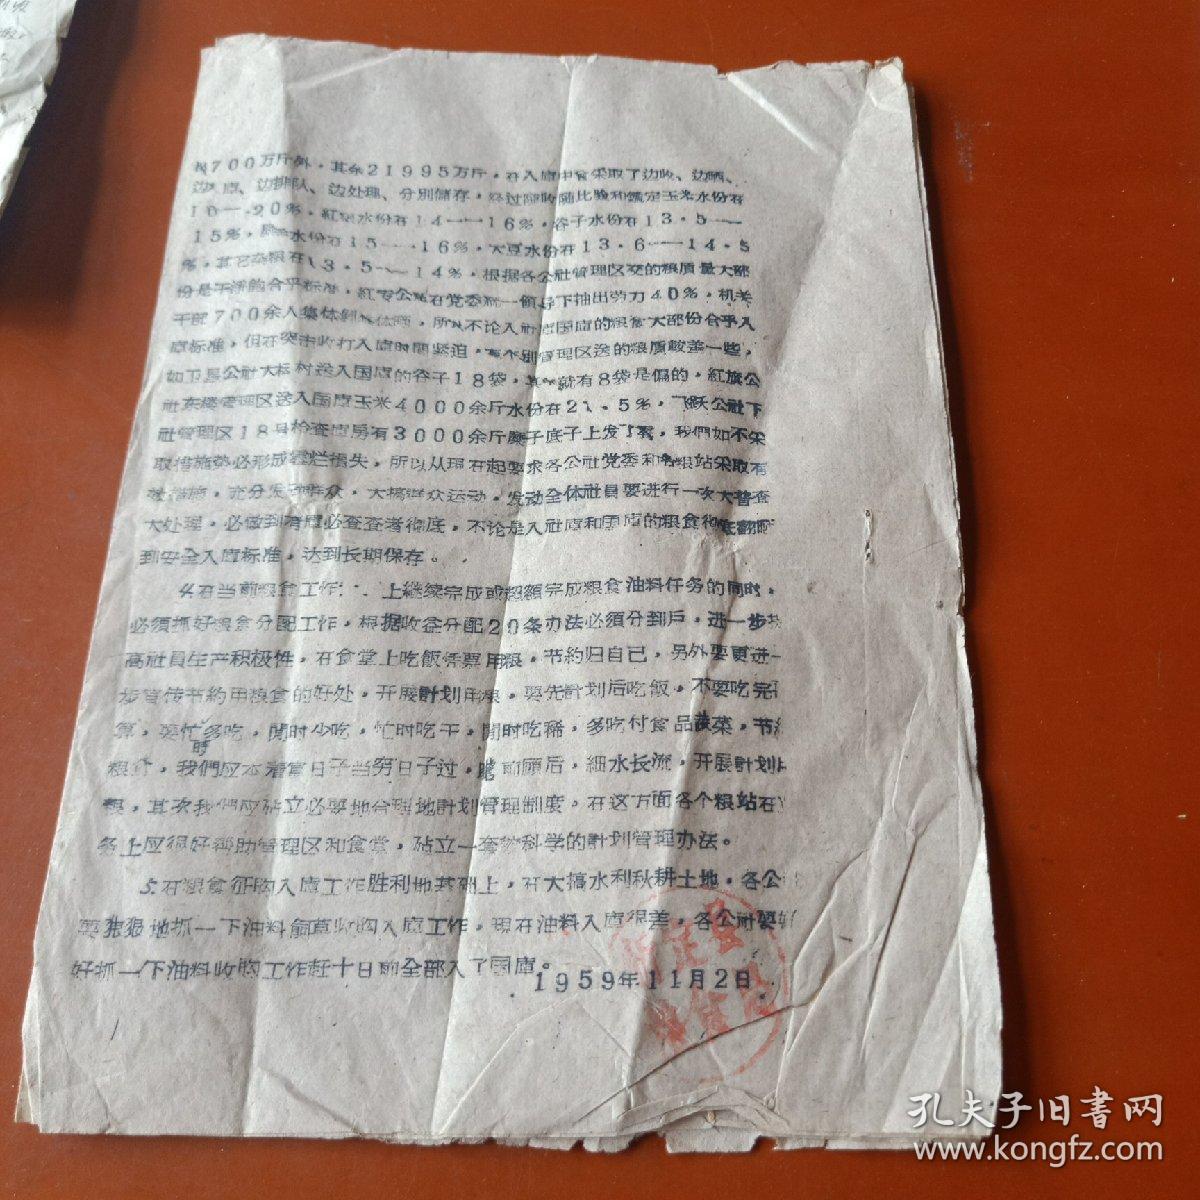 700万斤外，其余21995万斤，在入庫中食采取了边收、边晒、
边入庫、边排队、边处理、分别儲存，经过随收随比驗和鑑定玉米水份在
16—20%，紅粮水份在14——16%，谷子水份在13.5——
15%，水份在15——16%，大豆水份在13.6——14.5
%，其它杂粮在13.5——14%，根据各公社管理区交的粮质量大部
份是干淨的合乎标准，紅专公社在党委統一領导下抽出劳力40%，机关
干部700余人集体，所以不论入社庫国庫的粮食大部份合乎入
庫标准，但在突击收打入庫时間紧迫，有个别管理区送的粮质較差一些，
如卫星公社大村送入国庫的谷子18袋，其中就有8袋是偏的，紅旗公
社管理区送入国庫玉米4000余斤水份在21.5%，飞跃公社下
社管理区18号检查庫房有3000余斤糜子底子上发了霉，我們如不采
取措施势必形成霉烂損失，所以从現在起要求各公社党委和各粮站采取有
效措施，充分发动群众，大搞群众运动，发动全体社員要进行一次大普查
大处理，必做到有庫必查查者彻底，不论是入社庫和国庫的粮食彻底翻晒
到安全入庫标准，达到长期保存。
4在当前粮食工作 上継续完成或超額完成粮食油料任务的同时，
必須抓好粮食分配工作，根据收益分配20条办法必須分到戶，进一步
高社員生产积极性，在食堂上吃飯凭票用粮，节約归自己，另外要更进一
步宣传节約用粮食的好处，开展計划用粮，要先計划后吃飯，不要吃完
算，要忙时多吃，閒时少吃，忙时吃干，閒时吃稀，多吃付食品蔬菜，节
粮食，我們应本着富日子当穷日子过，瞻前顾后，細水长流，开展計划
粮，其次我們应站立必要地合理地計划管理制度，在这方面各个粮站在
务上应很好帮助管理区和食堂，站立一套科学的計划管理办法。
5在粮食征购入庫工作胜利地基础上，在大搞水利秋耕土地，各公
要狠狠地抓一下油料飼草收购入庫工作，現在油料入庫很差，各公社要
好抓一下油料收购工作赶十日前全部入了国庫。
1959年11月2日
孔夫子旧書网
www.kongfz.com